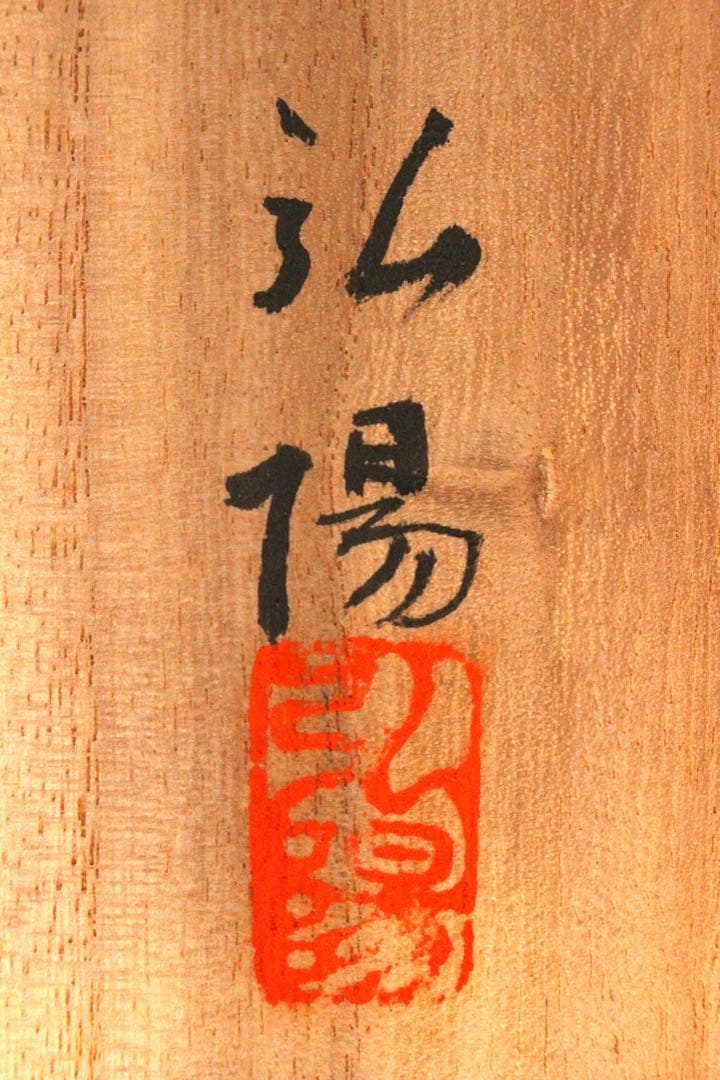 弘陽
弘陽